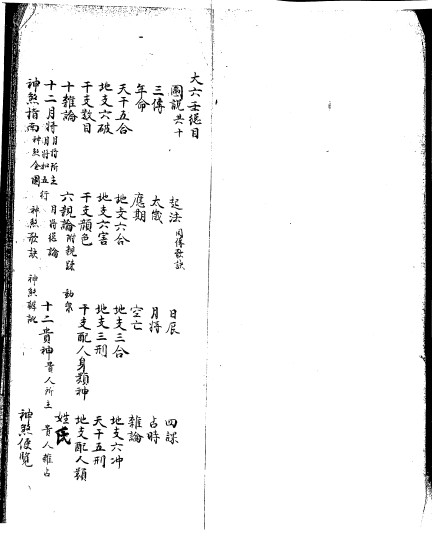 大六壬總目
圖說共十　起法同傳歌訣　日辰　四課
三傳　太歲　月將　占時
年命　應期　空亡　雜論
天干五合　地支六合　地支三合　地支六冲
地支六破　地支六害　地支三刑　天干五刑
干支数目　干支顏色　干支配人身類神　地支配人類
十雜論　六親論附親疎　姓氏
十二月將月將所主　月將總論　十二貴神貴人所主　貴人雜占
神煞指南神煞全圖　神煞歌訣　神煞便覧